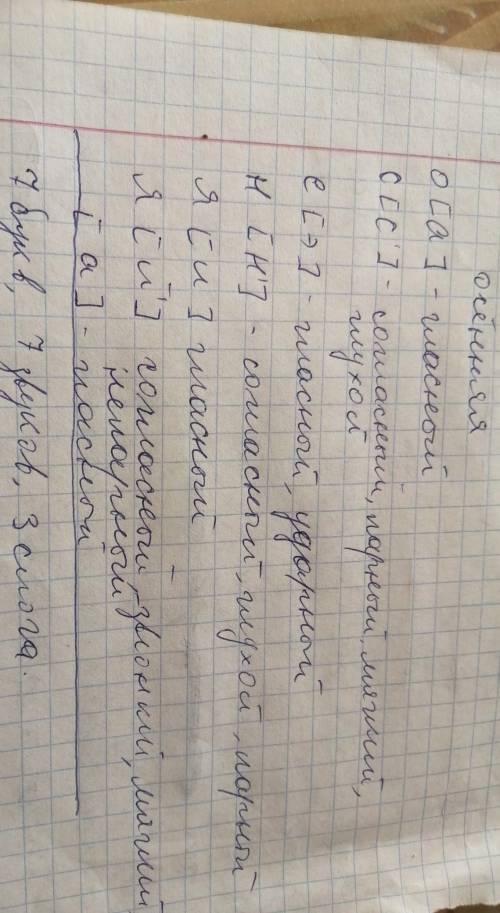 осенняя
о [а] - гласный
с [с'] - согласный, парный, мягкий,
глухой
е [э] - гласный, ударный
н [н'] - согласный, глухой, парный
я [и] гласный
я [й'] согласный, звонкий, мягкий
непарный
[а] - гласный
7 букв, 7 звуков, 3 слога.